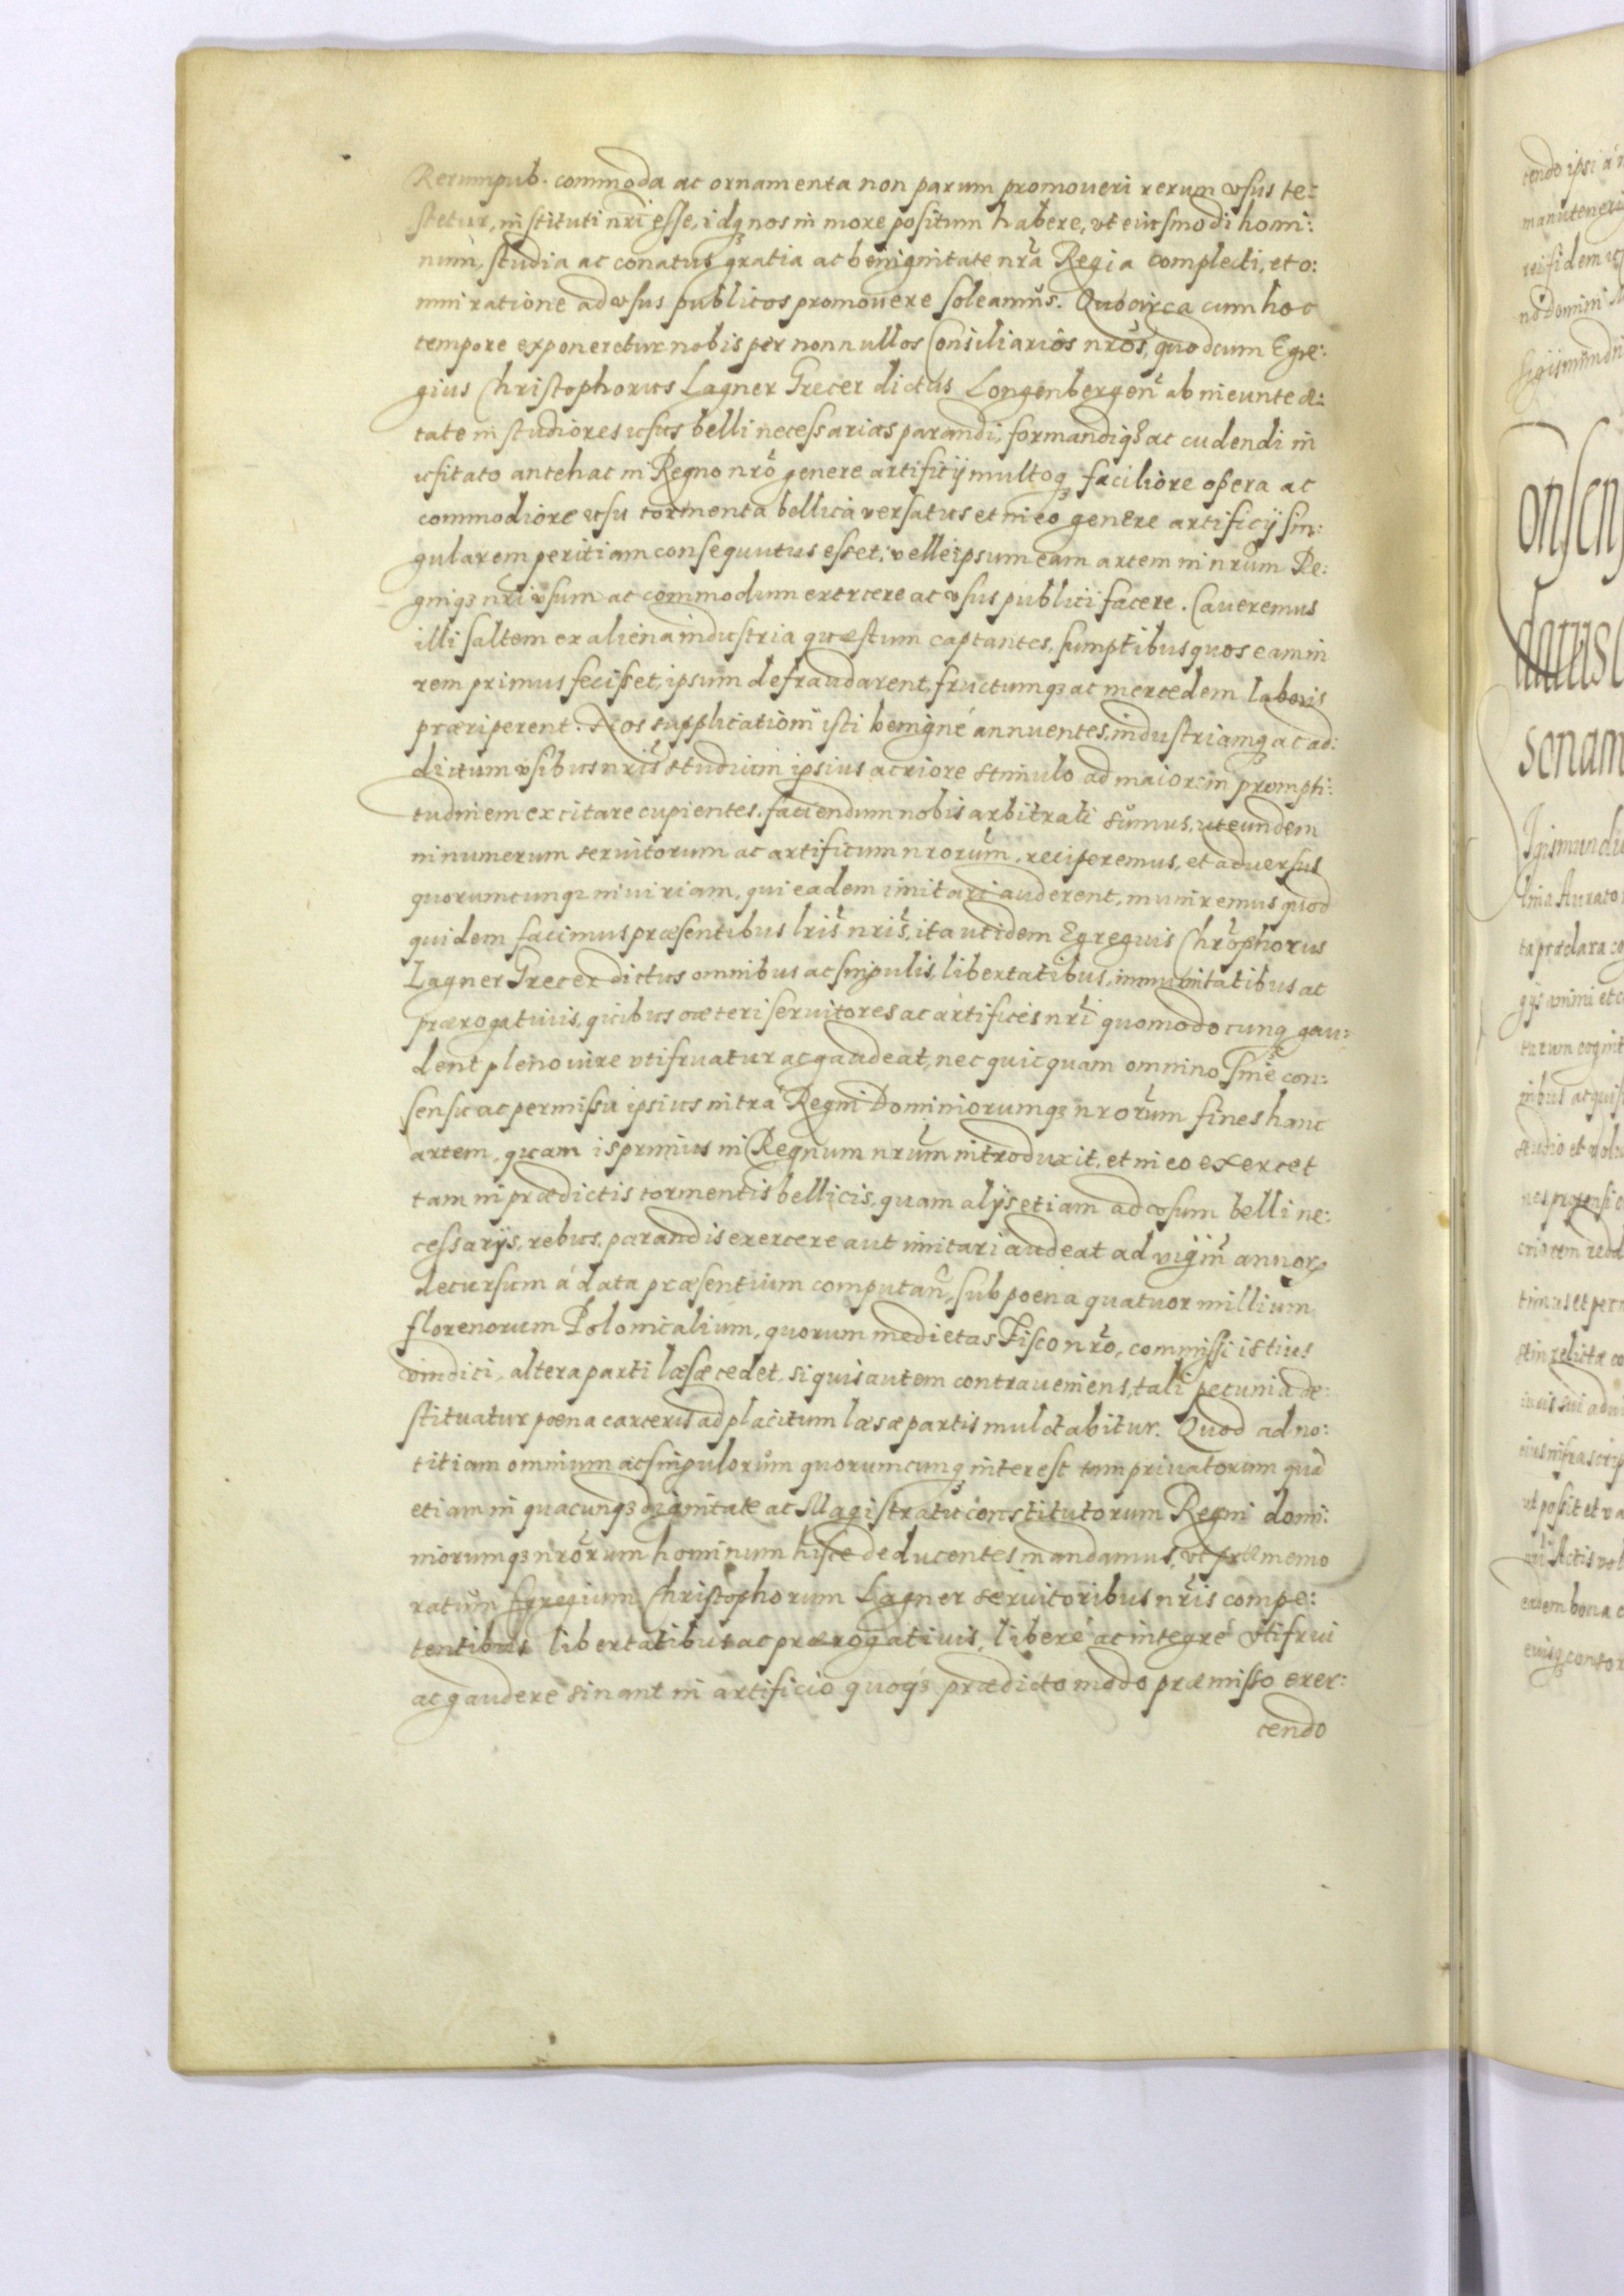 Rerumpub. commoda ac ornamenta non parum promoueri rerum vsus te:
stetur, instituti nri esse, idq nos in more positum habere, vt eiusmodi homi:
num, studia ac conatus gratia ac benignitate nra Regia complecti, et o:
mni ratione ad vsus publicos promouere soleamus. Quocirca cum hoc
tempore exponeretur nobis per nonnullos Consiliarios nros, quod cum Egre:
gius Christophorus Lagner Grecer dictus Longenbergen ab ineunte æ:
tate in studio res usus belli necessarias parandi, formandiqȝ ac cudendi in
usitato antehac in Regno nro genere artificij multoq faciliore opera ac
commodiore usu tormenta bellica versatus et in eo genere artificij sin:
gularem peritiam consequutus esset, velle ipsum eam artem in nrum Re:
gniqȝ nri vsum ac commodum exercere ac vsus publici facere. Caueremus
illi saltem ex aliena industria quæstum captantes, sumptibus quos eam in
rem primus fecisset, ipsum defraudarent, fructumqȝ ac mercedem laboris
præriperent. Nos supplicationi isti benigné annuentes, industriamq ac ad:
dictum vsibus nris studium ipsius acriore stimulo ad maiorem prompti:
tudinem excitare cupientes, faciendum nobis arbitrati sumus, ut eundem
in numerum seruitorum ac artificum nrorum, reciperemus, et aduersus
quorumcunqȝ iniuriam, qui eadem imitari auderent, muniremus quod
quidem facimus præsentibus lris nris, ita ut idem Egregius Chrophorus
Lagner Grecer dictus omnibus ac singulis, libertatibus, immunitatibus ac
prærogatiuis, quibus cæteri seruitores ac artifices nri quomodocunq gau:
dent pleno iure vtifruatur ac gaudeat, nec quicquam omnino sine con:
sensu ac permissu ipsius intra Regni Dominiorumqȝ nrorum fines hanc
artem, quam is primus in Regnum nrum introduxit, et in eo exercet
tam in prædictis tormentis bellicis, quam alijs etiam ad vsum belli ne:
cessarijs, rebus, parandis exercere aut imitari audeat ad vigin annor
decursum á data præsentium computan, sub poena quatuor millium
florenorum Polonicalium, quorum medietas Fisco nro, commissi istius
vindici, altera parti læsæ cedet, si quis autem contraueniens, tali pecunia de:
stituatur poena carceris ad placitum læsæ partis mulctabitur. Quod ad no:
titiam omnium ac singulorum quorumcunq interest tam priuatorum qua
etiam in quacunqȝ dignitate ac Magistratu constitutorum Regni domi:
niorumqȝ nrorum hominum hisce deducentes mandamus, vt præmemo
ratum Egregium Christophorum Lagner seruitoribus nris compe:
tentibus libertatibus ac prærogatiuis, liberé ac integré vtifrui
ac gaudere sinant in artificio quoqȝ prædicto modo præmisso exer:
cendo